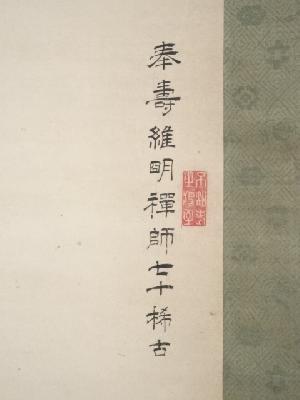 奉壽維明禪師七十稀古